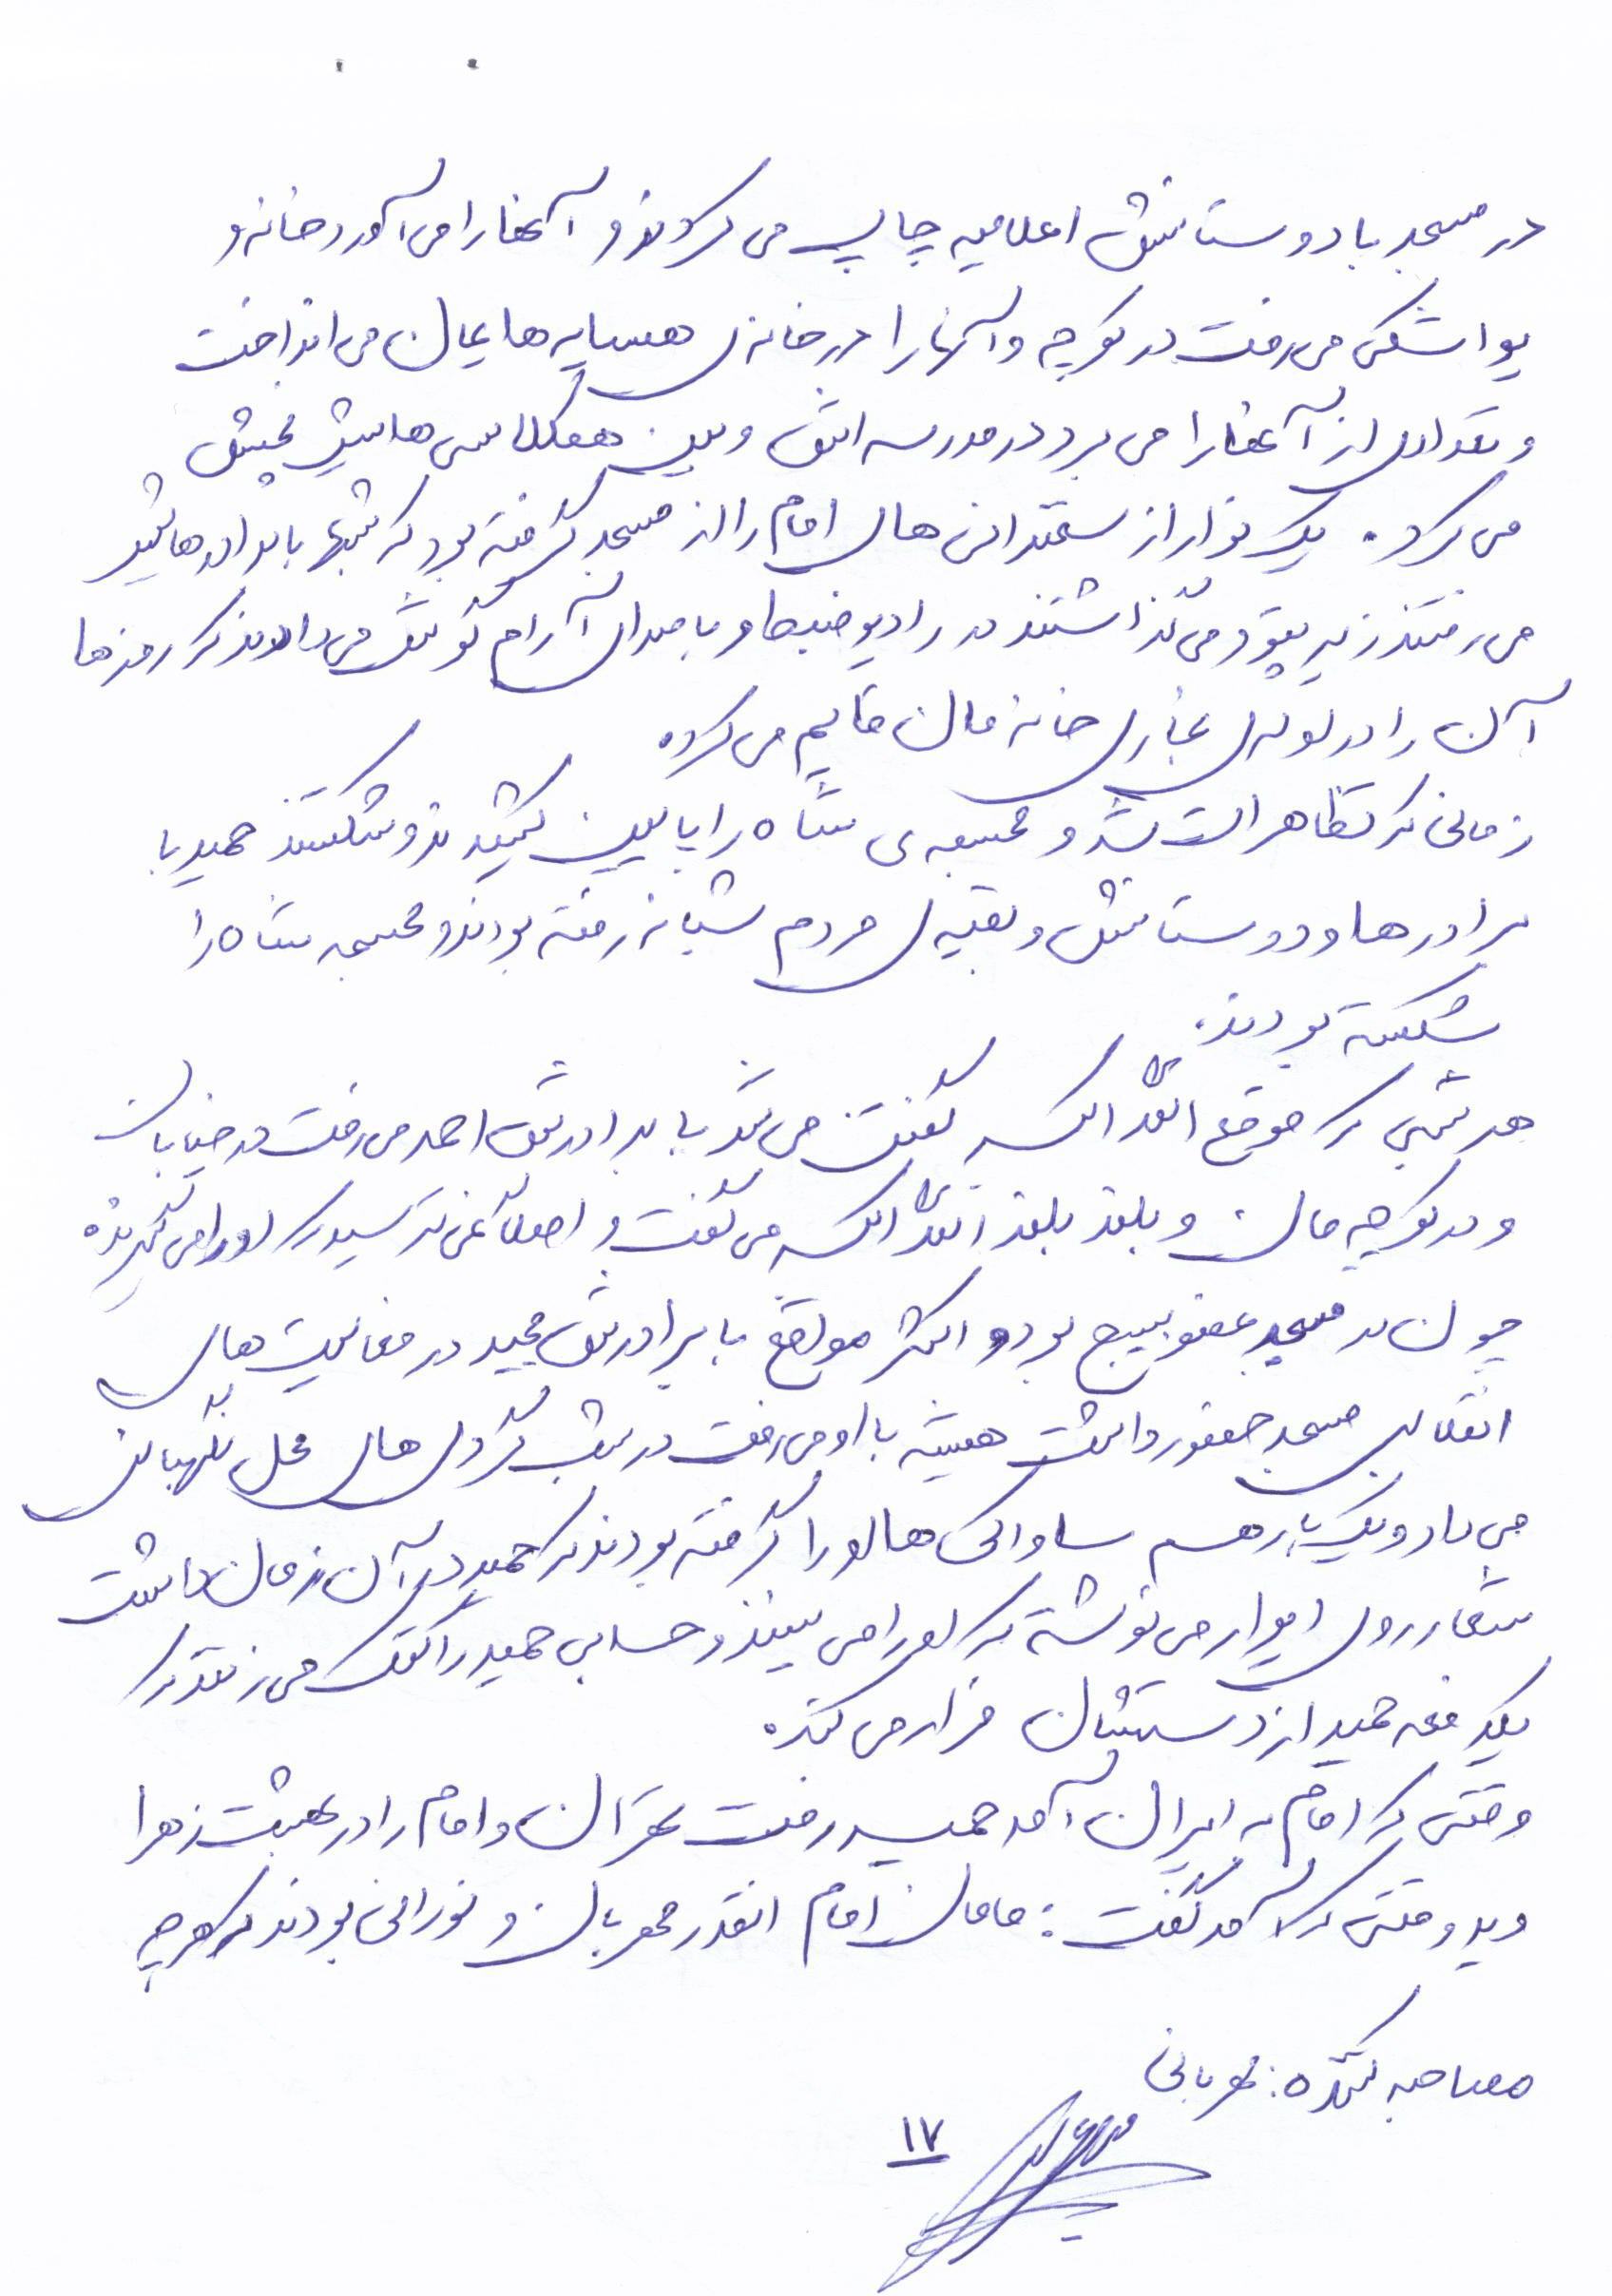 در مسجد با دوستانش اعلامیه چاپ می کردند و آنها را می آورد خانه و
یواشکی می رفت در کوچه و آنها را در خانه ی همسایه هایمان می انداخت
و تعدادی از آنها را می برد در مدرسه اش و بین همکلاسی هایش پخش
می کرد. یک نوار از سخنرانی های امام را از مسجد گرفته بود که شبها با برادرهایش
می رفتند زیر پتو و می گذاشتند در رادیو ضبط و با صدای آرام گوش می دادند که روزها
آن را در لوله ی بخاری خانه مان قایم می کرد.
زمانی که تظاهرات شد و مجسمه ی شاه را پایین کشیدند و شکستند حمید با
برادرها و دوستانش و بقیه ی مردم شبانه رفته بودند و مجسمه شاه را
شکسته بودند.
هر شبی که موقع الله اکبر گفتن می شد با برادرش احمد می رفت در خیابان
و در کوچه مان و بلند بلند الله اکبر می گفت و اصلاً نمی ترسید که او را می گیرند
چون در مسجد عضو بسیج بود و اکثر مواقع با برادرش مجید در فعالیت های
انقلابی مسجد حضور داشت همیشه با او می رفت در شب گردی های محل نگهبانی
می داد و یک بار هم ساواکی ها او را گرفته بودند که حمید در آن زمان داشت
شعار روی دیوار می نوشته که او را می بینند و حسابی حمید را کتک می زنند که
یکدفعه حمید از دستشان فرار می کند.
وقتی که امام به ایران آمد حمید رفت تهران و امام را در بهشت زهرا
دید و وقتی که آمد گفت: مامان امام انقدر مهربان و نورانی بودند که هر چه
مصاحبه کننده: قربانی
۱۷